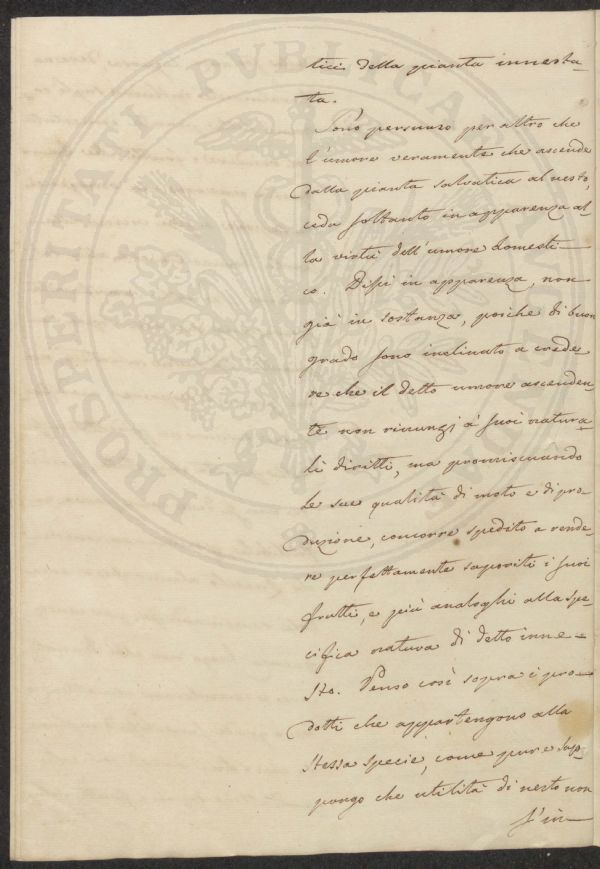 lici della pianta innesta-
ta.
Sono persuaso per altro che
l'umore veramente che ascende
dalla pianta salvatica al nesto,
ceda soltanto in apparenza al-
la virtù dell'umore domesti-
co. Dissi in apparenza, non
già in sostanza, poiche di buon
grado sono inclinato a crede-
re che il detto umore ascenden-
te non rinunzj à suoi natura-
li diritti, ma promiscuando
le sue qualità di moto e di pro-
duzione, concorre spedito a rende-
re perfettamente saporiti i suoi
frutti, e più analoghi alla spe-
cifica natura di detto inne-
sto. Penso così sopra i pro-
dotti che appartengono alla
stessa specie, come pure sup-
pongo che utilità di nesto non
s'in-
PROSPERITATI PVBLICAE